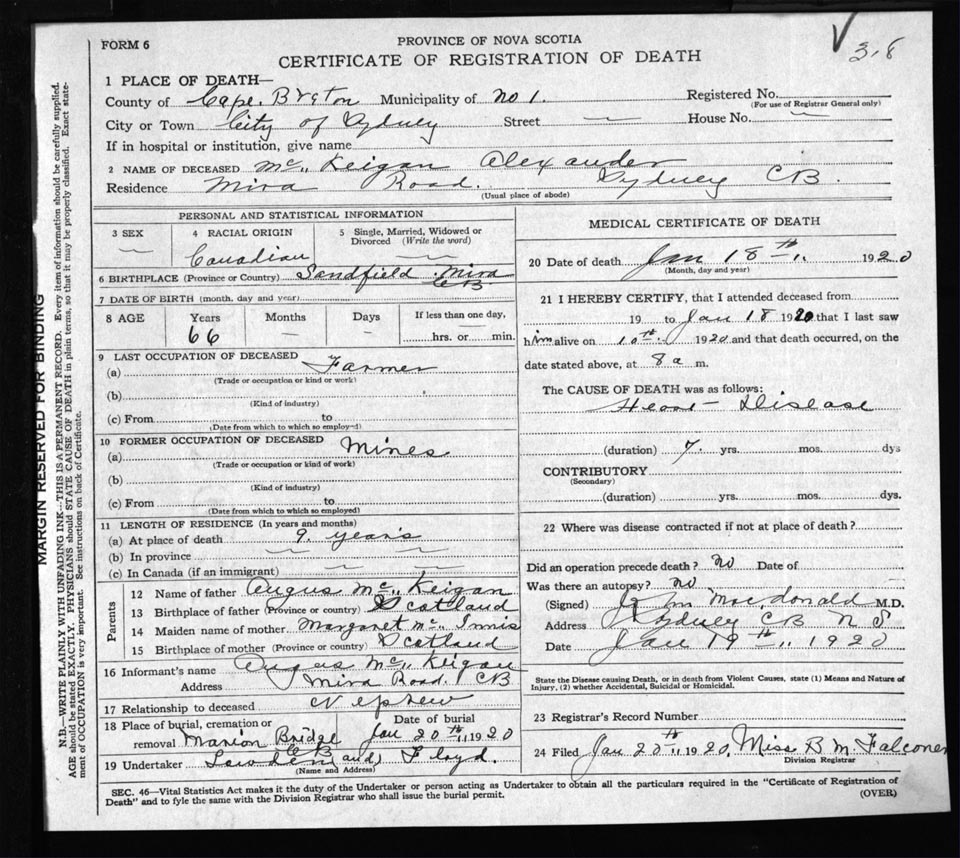 V 3,8
FORM 6
PROVINCE OF NOVA SCOTIA
CERTIFICATE OF REGISTRATION OF DEATH
1 PLACE OF DEATH—
County of Cape. Breton Municipality of No 1. Registered No.
(For use of Registrar General only)
City or Town City of Sydney Street — House No. —
If in hospital or institution, give name
2 NAME OF DECEASED Mc,, Keigan Alexander
Residence Mira Road. Sydney CB.
(Usual place of abode)
PERSONAL AND STATISTICAL INFORMATION
3 SEX 4 RACIAL ORIGIN 5 Single, Married, Widowed or Divorced (Write the word)
— Canadian —
6 BIRTHPLACE (Province or Country) Sandfield Mira CB
7 DATE OF BIRTH (month, day and year)
8 AGE Years Months Days If less than one day,
66 — — hrs. or min.
9 LAST OCCUPATION OF DECEASED
(a) Farmer
(Trade or occupation or kind or work)
(b)
(Kind of industry)
(c) From to
(Date from which to which so employed)
10 FORMER OCCUPATION OF DECEASED
(a) Mines
(Trade or occupation or kind of work)
(b)
(Kind of industry)
(c) From to
(Date from which to which so employed)
11 LENGTH OF RESIDENCE (In years and months)
(a) At place of death 9. years
(b) In province — —
(c) In Canada (if an immigrant) — —
Parents
12 Name of father Angus Mc,, Keigan
13 Birthplace of father (Province or country) Scotland
14 Maiden name of mother Margaret Mc,, Innis
15 Birthplace of mother (Province or country) Scotland
16 Informant's name Angus Mc,, Keigan
Address Mira Road. CB
17 Relationship to deceased Nephew
18 Place of burial, cremation or removal Marion Bridge CB Date of burial Jan 20th,, 1920
19 Undertaker Lowden and Floyd.
(Name and Address)
MEDICAL CERTIFICATE OF DEATH
20 Date of death Jan 18th,, 1920
(Month, day and year)
21 I HEREBY CERTIFY, that I attended deceased from
19 to Jan 18 1920 that I last saw
him alive on 10th,, 1920 and that death occurred, on
date stated above, at 8 a m.
The CAUSE OF DEATH was as follows:
Heart - Disease
(duration) 7. yrs. mos. dys
CONTRIBUTORY
(Secondary)
(duration) yrs. mos. dys.
22 Where was disease contracted if not at place of death?
Did an operation precede death? No Date of
Was there an autopsy? No
(Signed) Macdonald M.D.
Address Sydney CB N S
Date Jan 19th,, 1920
State the Disease causing Death, or in death from Violent Causes, state (1) Means and Nature of
Injury, (2) whether Accidental, Suicidal or Homicidal.
23 Registrar's Record Number
24 Filed Jan 22th,, 1920, Miss B M. Falconer
Division Registrar
SEC. 46—Vital Statistics Act makes it the duty of the Undertaker or person acting as Undertaker to obtain all the particulars required in the "Certificate of Registration of
Death" and to fyle the same with the Division Registrar who shall issue the burial permit. (OVER)
MARGIN RESERVED FOR BINDING
N.B.—WRITE PLAINLY WITH UNFADING INK—THIS IS A PERMANENT RECORD. Every item of information should be carefully supplied.
AGE should be stated EXACTLY. PHYSICIANS should STATE CAUSE OF DEATH in plain terms, so that it may be properly classified. Exact state-
ment of OCCUPATION is very important. See instructions on back of Certificate.